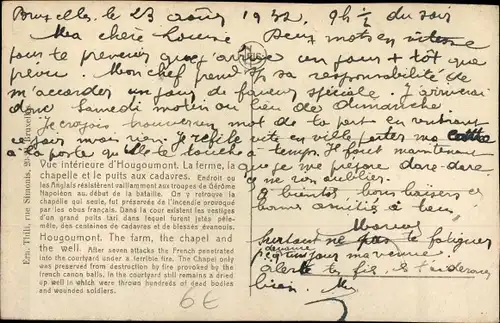 Bruxelles, le 23 août 1932. 9h 1/2 du soir
Ma chère Louise Deux mots en vitesse
pour te prévenir que j'arrive un jour + tôt que
prévu. Mon chef prend sous sa responsabilité de
m'accorder un jour de faveur spéciale. J'arriverai
donc samedi matin au lieu de dimanche.
Je croyais trouver un mot de ta part en rentrant
ce jour mais rien. Je refile vite en ville porter ma carte
à la poste qu'elle te touche à temps. Il faut maintenant
que je me prépare dare-dare
à ne rien oublier.
à bientôt bons baisers et
bonnes amitiés à tous
Marcel
Surtout ne pas te fatiguer
un jour
bien. M.
Vue intérieure d'Hougoumont. La ferme, la
chapelle et le puits aux cadavres. Endroit ou
les Anglais résistèrent vaillamment aux troupes de Gérôme
Napoléon au début de la bataille. On y retrouve la
chapelle qui seule, fut préservée de l'incendie provoqué
par les obus français. Dans la cour existent les vestiges
d'un grand puits tari dans lequel furent jetés pêle-mêle,
des centaines de cadavres et de blessés évanouis.
Hougoumont. The farm, the chapel and
the well. After seven attacks the French penetrated
into the courtyard under a terrible fire. The Chapel only
was preserved from destruction by fire provoked by the
french canon balls. In the courtyard still remains a dried
up well in which were throwns hundreds of dead bodies
and wounded soldiers.
Ern. Thill, rue Simonis, Bruxelles
6€